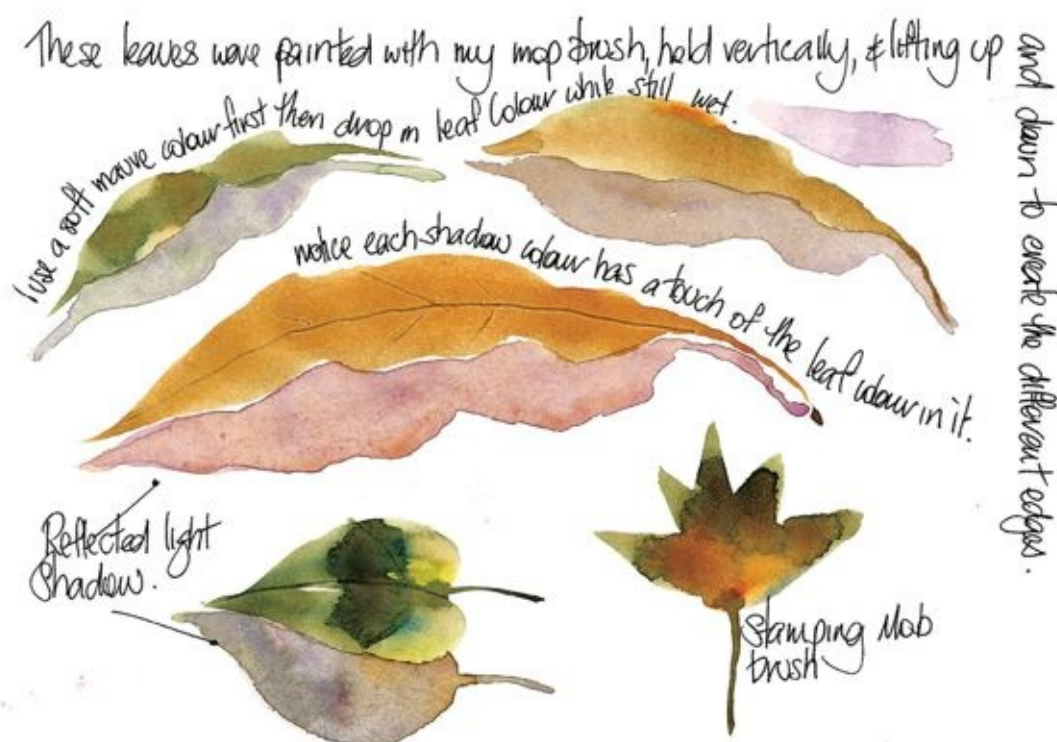 These leaves were painted with my mop brush, held vertically, & lifting up
and down to create the different edges.
I use a soft mauve colour first then drop in leaf colour while still wet.
notice each shadow colour has a touch of the leaf colour in it.
Reflected light
Shadow.
Stamping Mob
brush